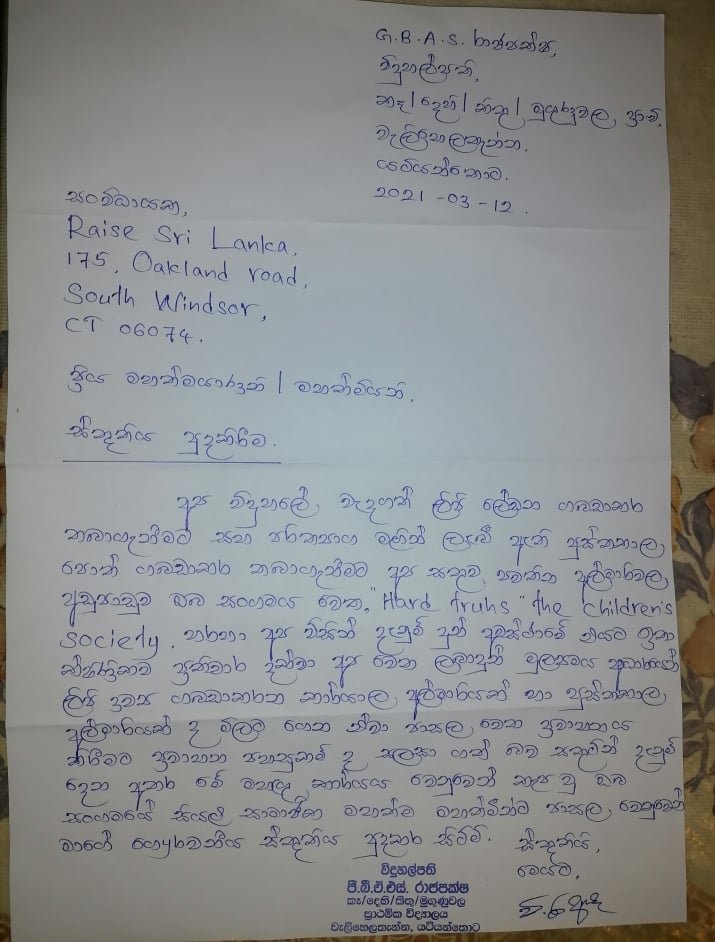 G.B.A.S. රාජපක්ෂ,
විදුහල්පති,
කෑ/දෙහි/සිතු/මුගුණුවල ප්‍රාථ,
වැලිහෙලතැන්න,
යටියන්තොට.
2021-03-12.
සංවිධායක,
Raise Sri Lanka,
175, Oakland road,
South Windsor,
CT 06074.
ප්‍රිය මහත්මයාණනි / මහත්මියනි,
ස්තූතිය පුදකිරීම.
අප විදුහලේ, වැදගත් ලිපි ලේඛන ගබඩාකර
තබාගැනීමට සහ පරිත්‍යාග මඟින් ලැබී ඇති පුස්තකාල
පොත් ගබඩාකර තබාගැනීමට අප සතුව පවතින අල්මාරිවල
අඩුපාඩුව ඔබ සංගමය වෙත, "Hard truhs" "the Children's
Society, හරහා අප විසින් දැනුම් දුන් අවස්ථාවේ එයට ඉතා
ක්ෂණිකව ප්‍රතිචාර දක්වා අප වෙත ලබාදුන් මූල්‍යමය ආධාරයෙන්
ලිපි ද්‍රව්‍ය ගබඩාකරන කාර්යාල අල්මාරියක් හා පුස්තකාල
අල්මාරියක් ද මිලට ගෙන ඒවා පාසල වෙත ප්‍රවාහනය
කිරීමට ප්‍රවාහන පහසුකම් ද සලසා ගත් බව සතුටින් දැනුම්
දෙන අතර මේ මහඟු කාර්යය වෙනුවෙන් කැප වූ ඔබ
සංගමයේ සියලු සාමාජික මහත්ම මහත්මීන්ට පාසල වෙනුවෙන්
මාගේ ගෞරවනීය ස්තූතිය පුදකර සිටිමි. ස්තූතියි,
මෙයට,
විදුහල්පති
ජී.බී.ඒ.එස්. රාජපක්ෂ
කෑ/දෙහි/සිතු/මුගුණුවල
ප්‍රාථමික විද්‍යාලය
වැලිහෙලතැන්න, යටියන්තොට